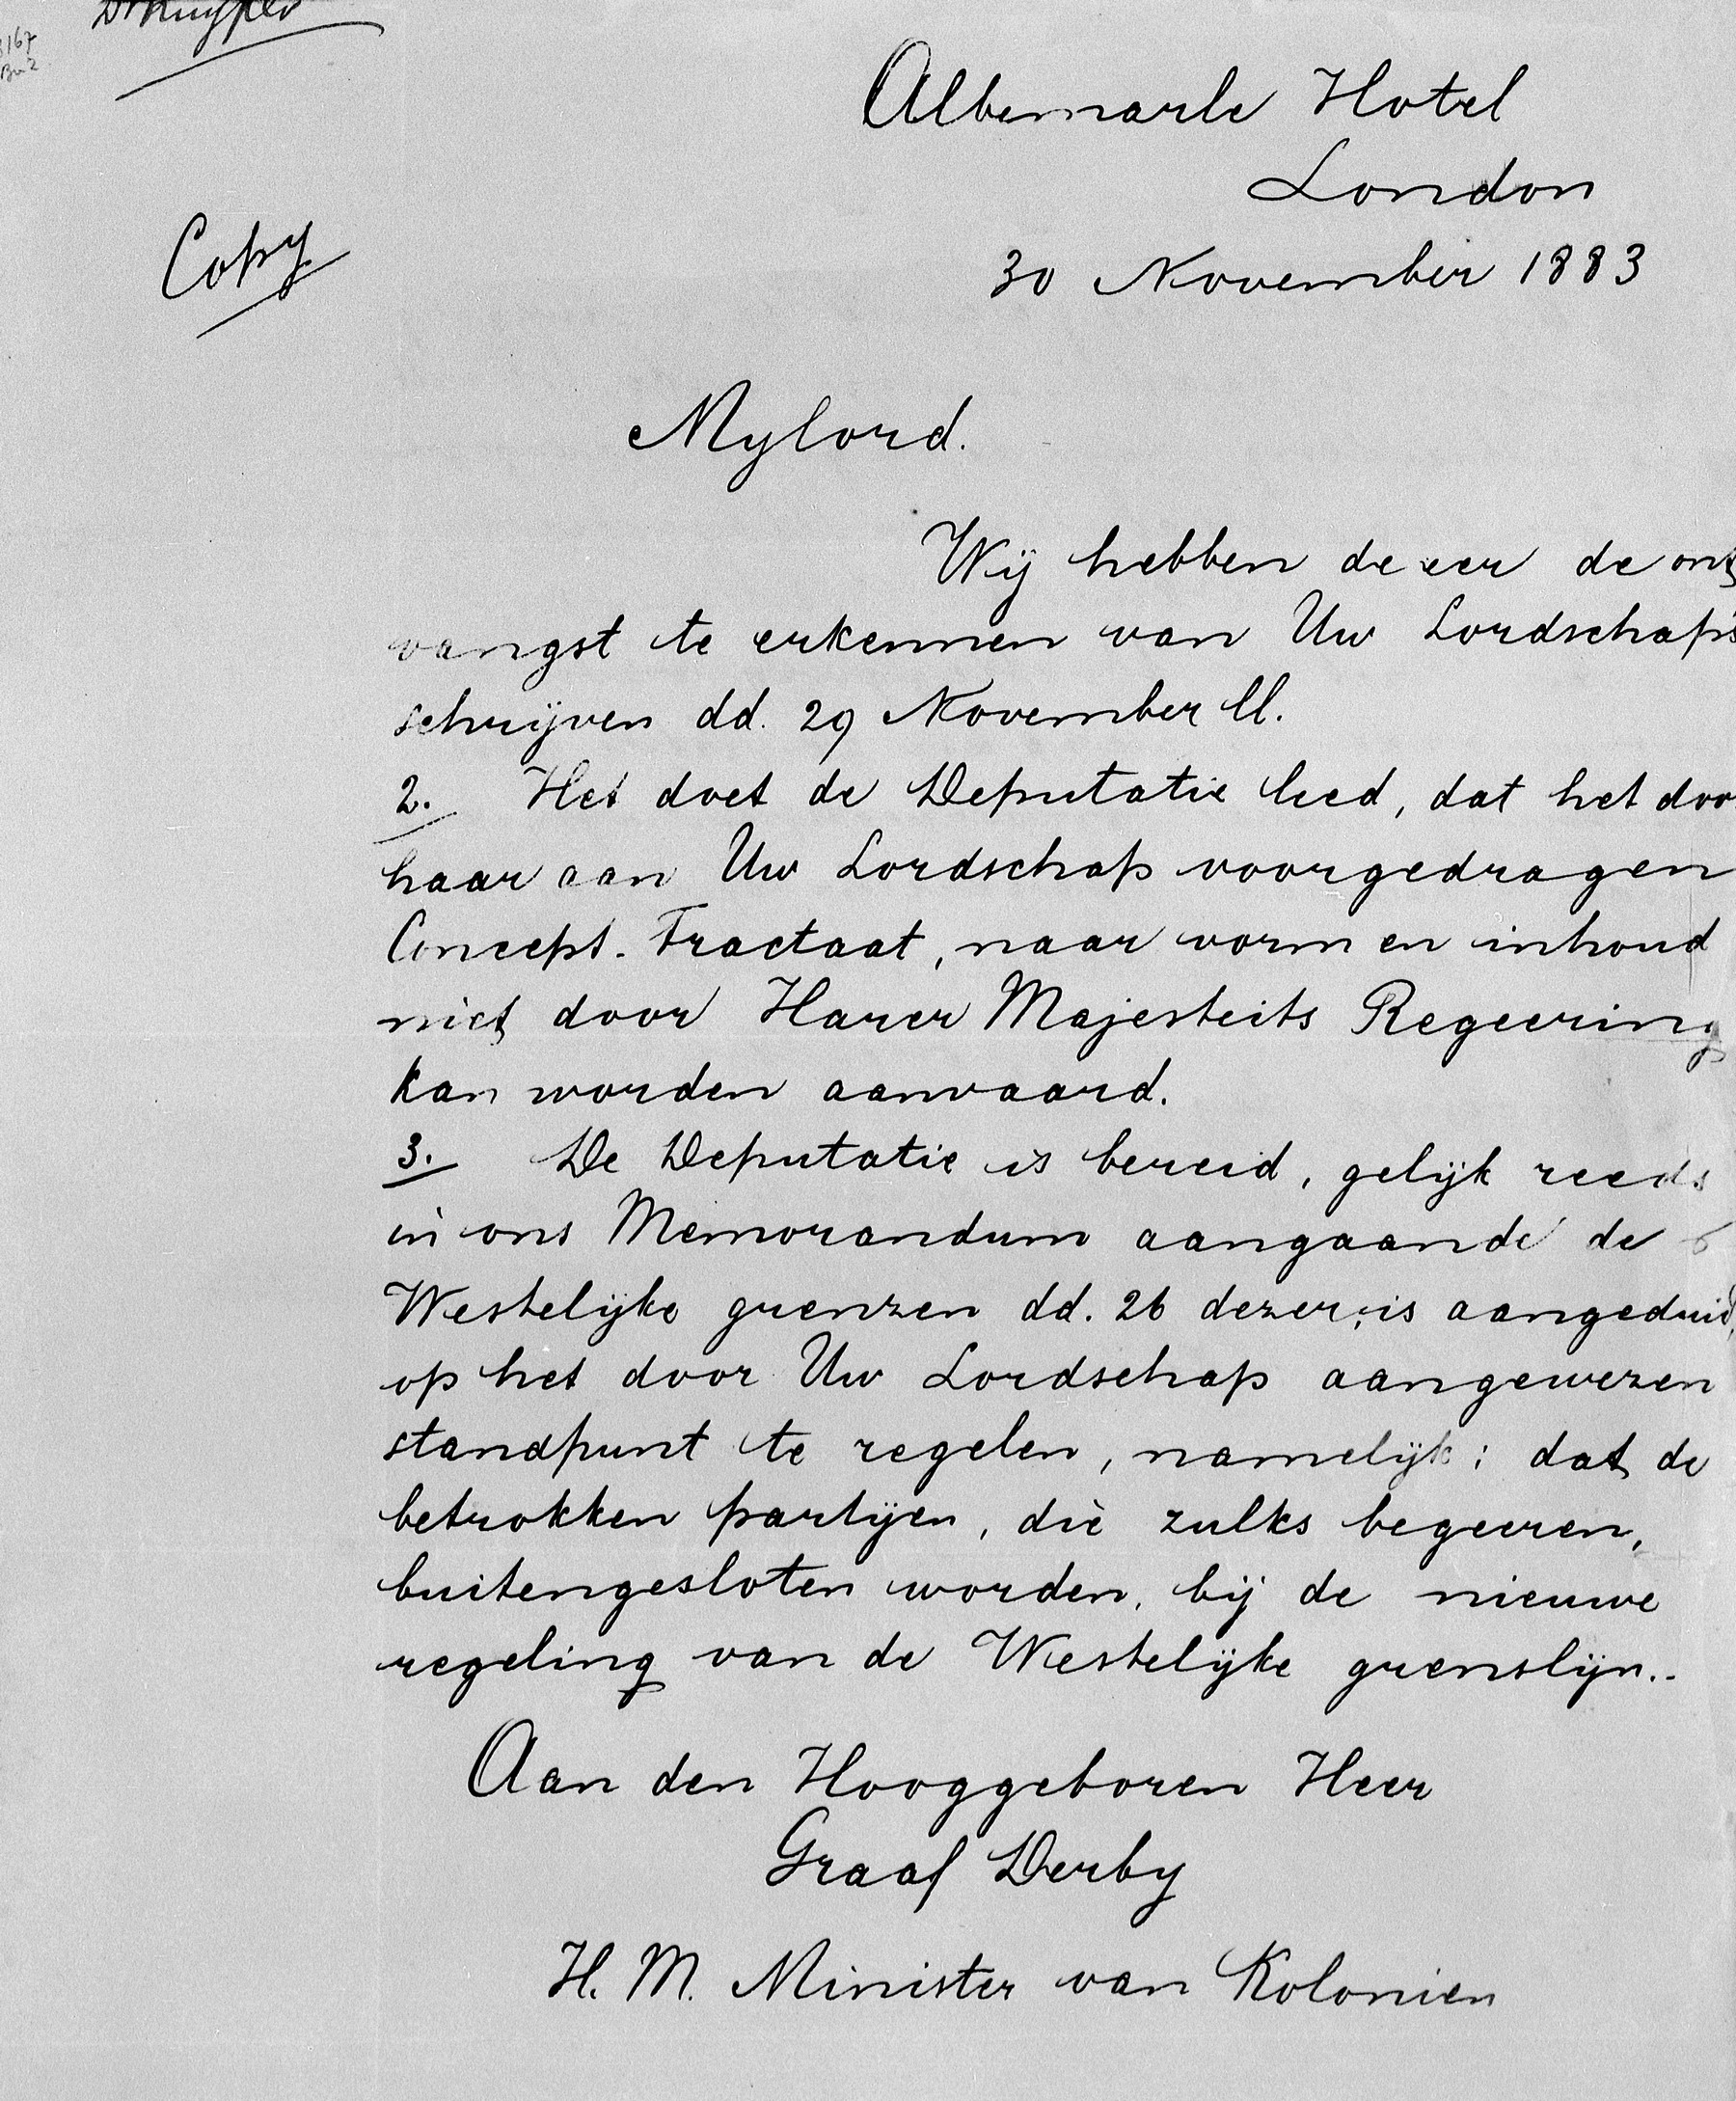 Dr Kuyper
Albemarle Hotel
London
Copy
30 November 1883
Mylord.
Wij hebben de eer de ont
vangst te erkennen van Uw Lordschap's
schrijven dd. 29 November ll.
2. Het doet de Deputatie leed, dat het door
haar aan Uw Lordschap voorgedragen
Concept-Tractaat, naar vorm en inhoud
niet door Harer Majesteits Regeering
kan worden aanvaard.
3. De Deputatie is bereid, gelijk reeds
in ons Memorandum aangaande de
Westelijke grenzen dd. 26 dezer, is aangeduid,
op het door Uw Lordschap aangewezen
standpunt te regelen, namelijk: dat de
betrokken partijen, die zulks begeeren,
buitengesloten worden, bij de nieuwe
regeling van de Westelijke grenslijn..
Aan den Hooggeboren Heer
Graaf Derby
H. M. Minister van Kolonien